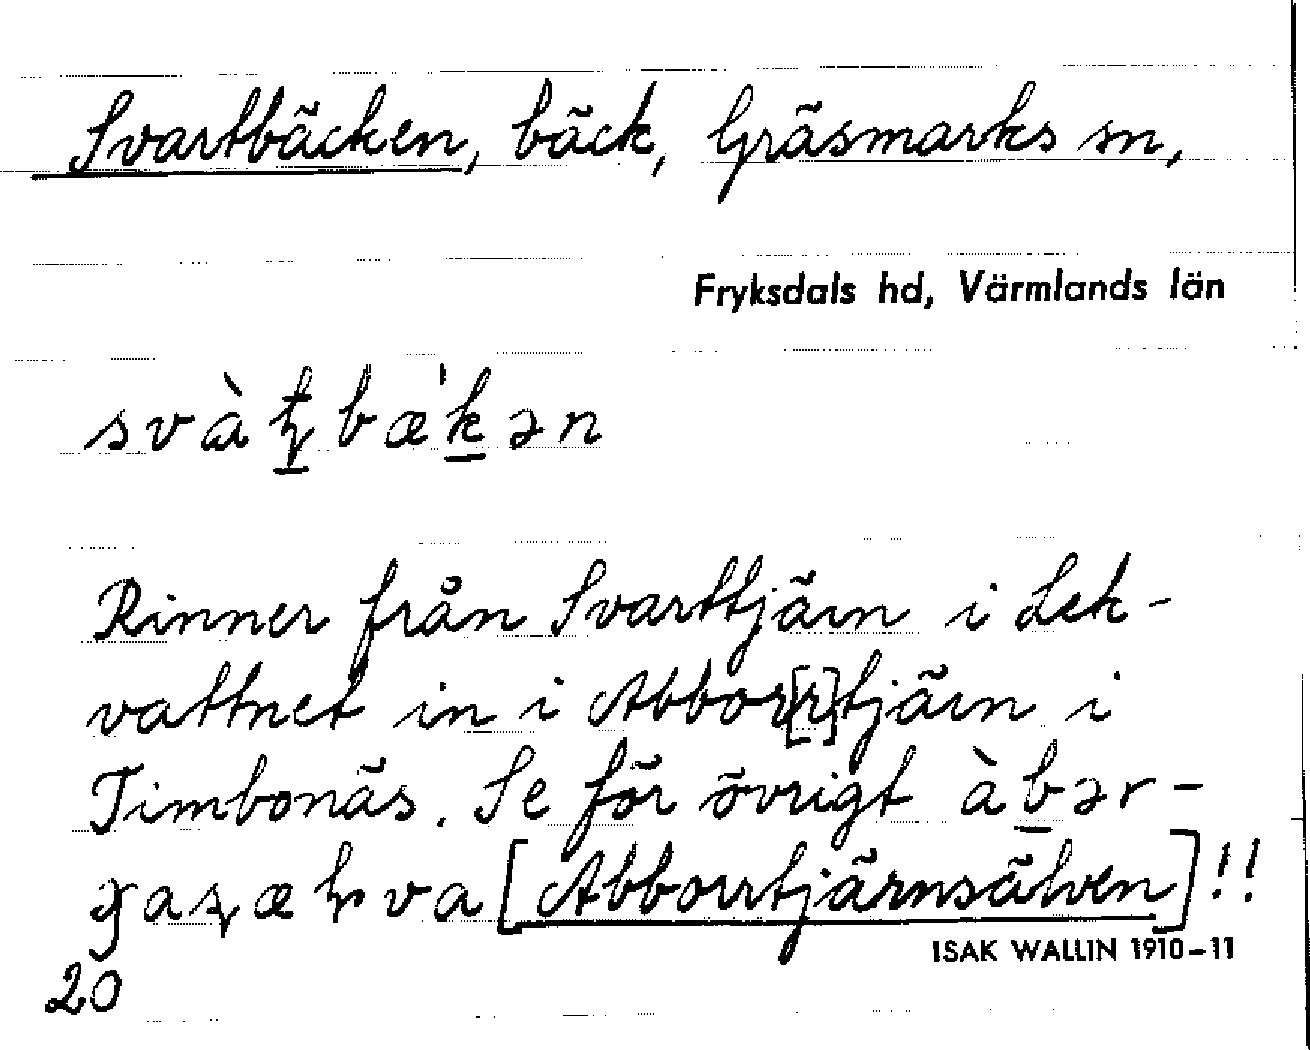 Svartbäcken, bäck, Gräsmarks sn,
Fryksdals hd, Värmlands län
Rinner från Svarttjärn i Lek-
vattnet in i Abbor[r]tjärn i
Timbonäs. Se för övrigt àbər-
[Abborrtjärnsälven]!!
ISAK WALLIN 1910-11
20